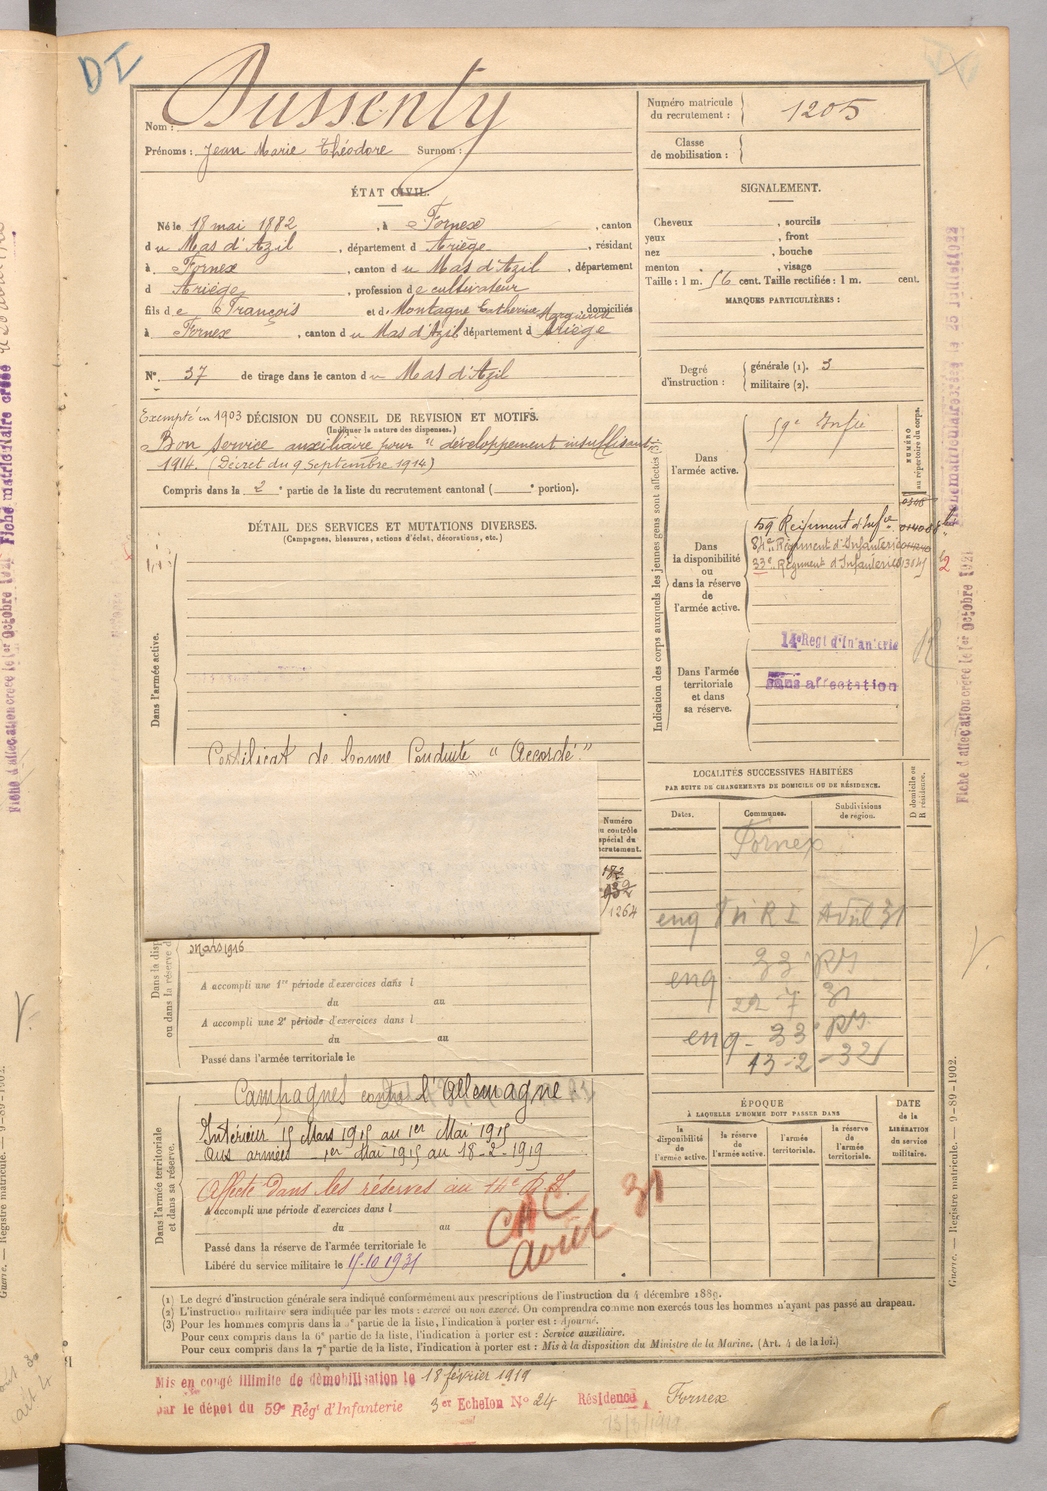 DI
Nom : Dussenty
Prénoms : Jean Marie Théodore Surnom :
Numéro matricule du recrutement : 1205
Classe de mobilisation :
ÉTAT CIVIL.
Né le 18 mai 1882, à Fornex, canton
du Mas d'Azil, département d Ariège, résidant
à Fornex, canton du Mas d'Azil, département
d Ariège, profession de cultivateur
fils de François et de Montagne Catherine Marguerite domiciliés
à Fornex, canton du Mas d'Azil département d Ariège
N° 37 de tirage dans le canton du Mas d'Azil
SIGNALEMENT.
Cheveux , sourcils
yeux , front
nez , bouche
menton , visage
Taille : 1 m. 56 cent. Taille rectifiée : 1 m. cent.
MARQUES PARTICULIÈRES :
Degré d'instruction : générale (1). 3
militaire (2).
Exempté en 1903 DÉCISION DU CONSEIL DE REVISION ET MOTIFS.
(Indiquer la nature des dispenses.)
Bon service auxiliaire pour "développement insuffisant"
1914. (Décret du 9 Septembre 1914)
Compris dans la 2e partie de la liste du recrutement cantonal ( e portion).
DÉTAIL DES SERVICES ET MUTATIONS DIVERSES.
(Campagnes, blessures, actions d'éclat, décorations, etc.)
Dans l'armée active.
Certificat de bonne Conduite "Accordé"
Indication des corps auxquels les jeunes gens sont affectés (3).
NUMÉRO au répertoire du corps.
Dans l'armée active.
59e Infie
Dans la disponibilité ou dans la réserve de l'armée active.
59 Régiment d'Infie
84e Régiment d'Infanterie
33e Régiment d'Infanterie
Dans l'armée territoriale et dans sa réserve.
14e Regt d'Infanterie
Sans affectation
LOCALITÉS SUCCESSIVES HABITÉES
PAR SUITE DE CHANGEMENTS DE DOMICILE OU DE RÉSIDENCE.
D domicile ou R résidence.
Dates. Communes. Subdivisions de région.
Fornex
Avril 31
22 7 31
13-2-32
Numéro au contrôle spécial du recrutement.
1264
Mars 1916
A accompli une 1re période d'exercices dans l
du au
A accompli une 2e période d'exercices dans l
du au
Passé dans l'armée territoriale le
Dans l'armée territoriale et dans sa réserve.
Campagnes contre l'Allemagne
Intérieur 15 Mars 1915 au 1er Mai 1915
Aux armées 1er Mai 1915 au 18-2-1919
Affecté dans les réserves au 14e R.I.
A accompli une période d'exercices dans l
du au
Passé dans la réserve de l'armée territoriale le
Libéré du service militaire le 15.10.1931
Août 31
ÉPOQUE
À LAQUELLE L'HOMME DOIT PASSER DANS
la disponibilité de l'armée active.
la réserve de l'armée active.
l'armée territoriale.
la réserve de l'armée territoriale.
DATE de la LIBÉRATION du service militaire.
(1) Le degré d'instruction générale sera indiqué conformément aux prescriptions de l'instruction du 4 décembre 1889.
(2) L'instruction militaire sera indiquée par les mots : exercé ou non exercé. On comprendra comme non exercés tous les hommes n'ayant pas passé au drapeau.
(3) Pour les hommes compris dans la 4e partie de la liste, l'indication à porter est : Ajourné.
Pour ceux compris dans la 6e partie de la liste, l'indication à porter est : Service auxiliaire.
Pour ceux compris dans la 7e partie de la liste, l'indication à porter est : Mis à la disposition du Ministre de la Marine. (Art. 4 de la loi.)
Mis en congé illimité de démobilisation le 18 février 1919
par le dépôt du 59e Régt d'Infanterie 3er Echelon N° 24 Résidence Fornex
Guerre. — Registre matricule. — 9-89-1902.
Fiche d'affectation créée le 1er Octobre 1921